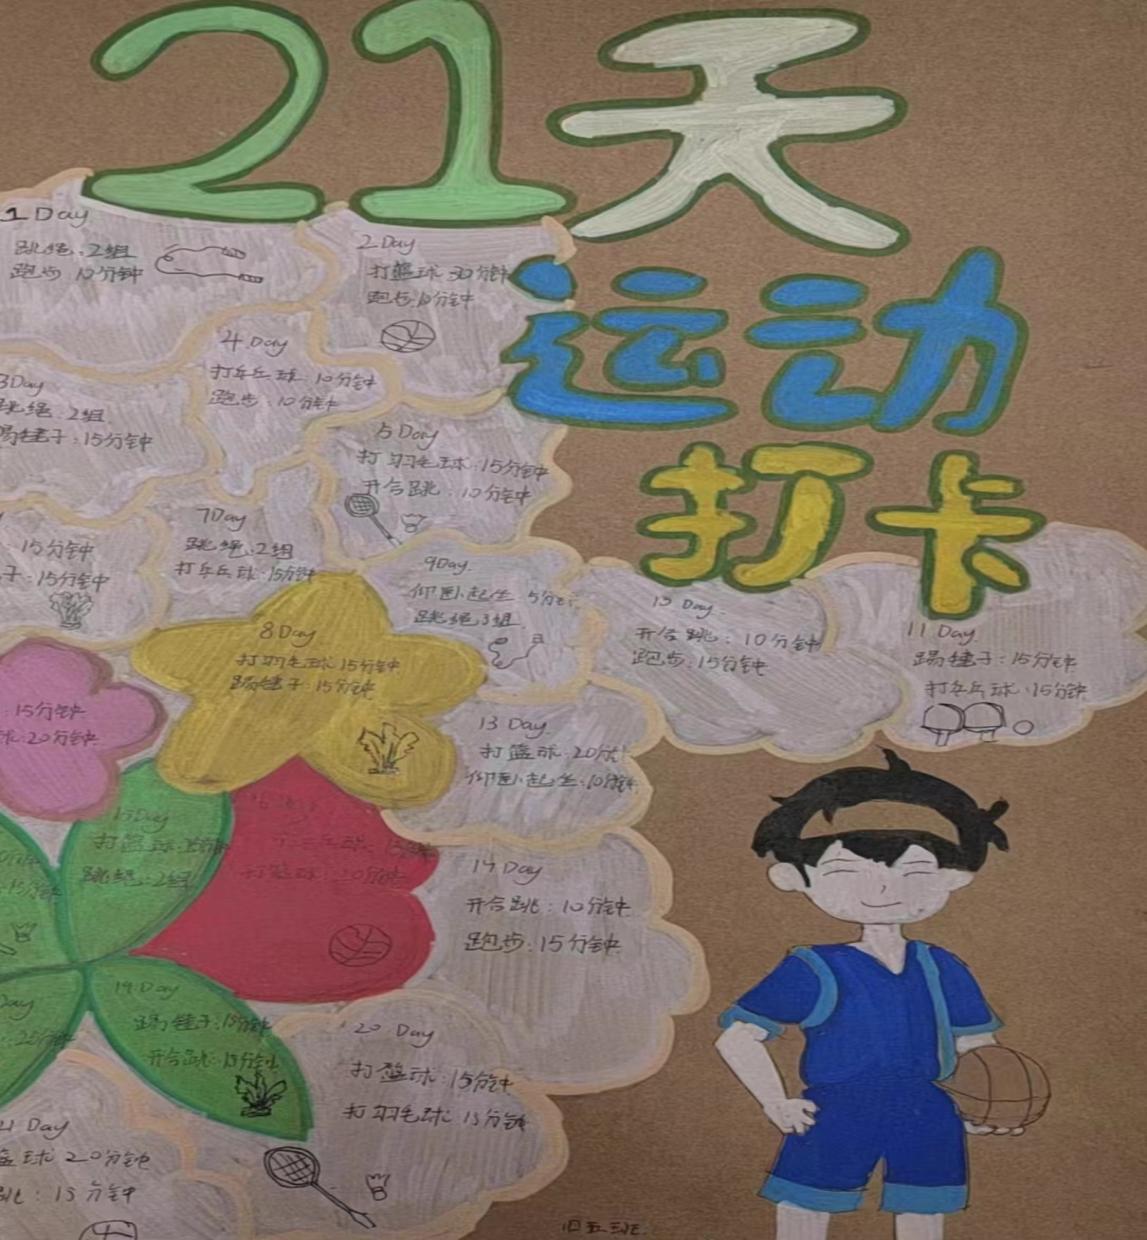 21天
运动
打卡
1 Day
跳绳:2组
跑步 10分钟
2 Day
打篮球 30分钟
跑步:10分钟
3Day
跳绳:2组
踢毽子:15分钟
4 Day
打乒乓球:10分钟
跑步:10分钟
5 Day
打羽毛球:15分钟
开合跳:10分钟
:15分钟
子:15分钟
7Day
跳绳:2组
打乒乓球:15分钟
8Day
打羽毛球 15分钟
踢毽子:15分钟
9Day
仰卧起坐 5分
跳绳3组
开合跳:10分钟
跑步:15分钟
11 Day
踢毽子:15分钟
打乒乓球:15分钟
:15分钟
球:20分钟
13 Day
打篮球:20分
仰卧起坐:10分钟
14 Day
开合跳:10分钟
跑步:15分钟
15Day
打篮球:15分钟
跳绳:2组
乒乓球
打篮球
19 Day
踢毽子:15分钟
开合跳:15分钟
20 Day
打篮球:15分钟
打羽毛球 15分钟
21 Day
篮球 20分钟
跳:15分钟